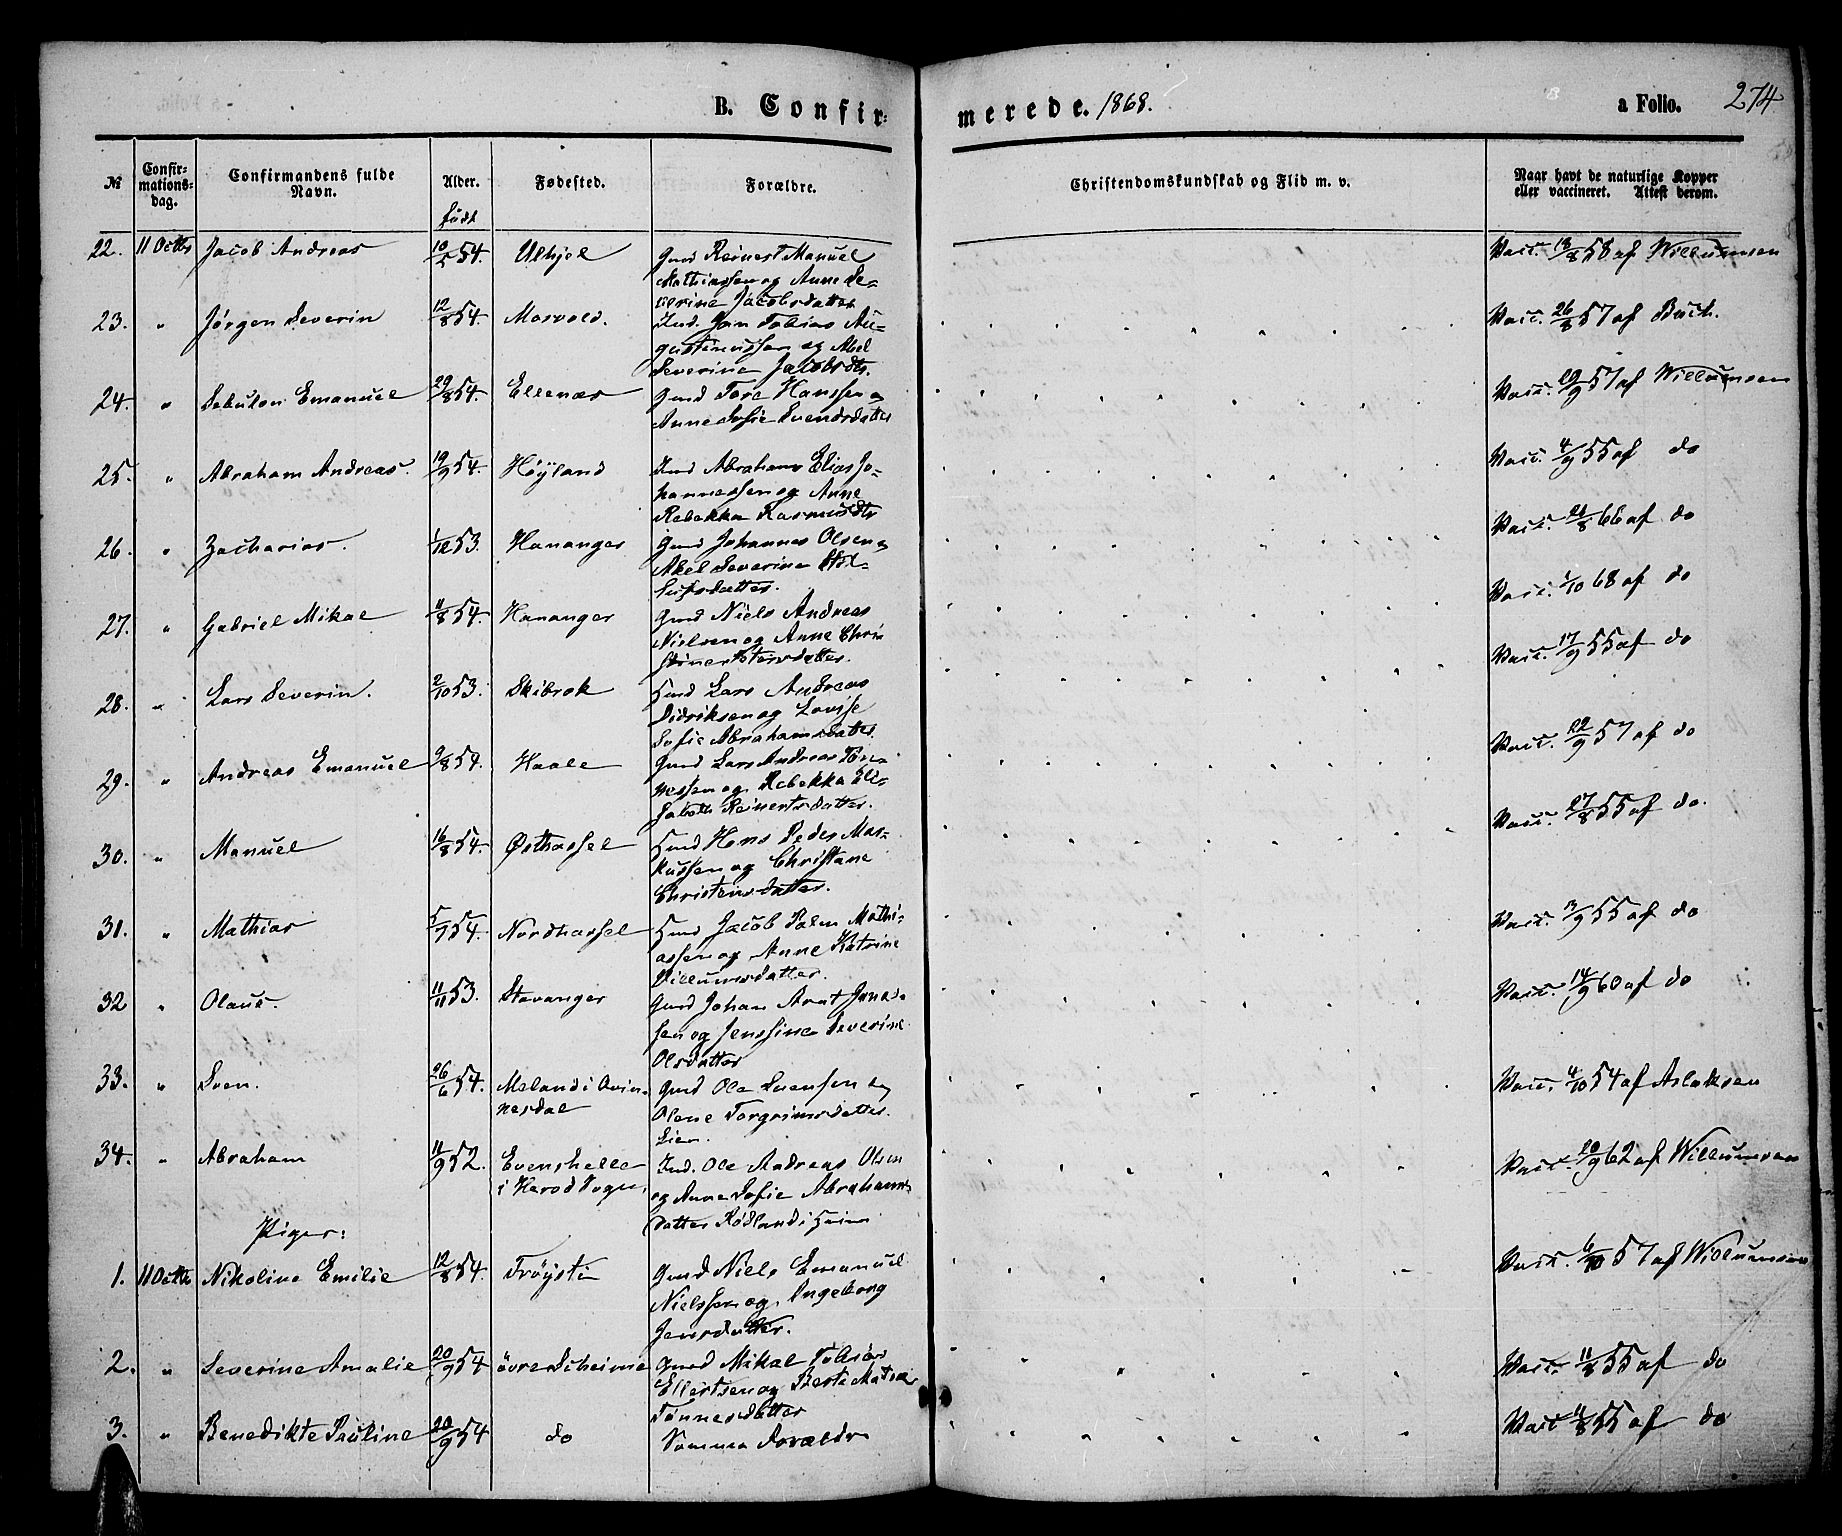 B. Confir-
merede. 1868.
a Folio. 274
№
Confir-
mations-
dag.
Confirmandens fulde
Navn.
Alder.
født
Fødested.
Forældre.
Christendomskundskab og Flid m. v.
Naar havt de naturlige Kopper
eller vaccineret. Attest derom.
22. 11 Octbr Jacob Andreas 10/5 54. Ulhjel Gmd Reinert Manuel
Mathiassen og Anne Se-
verine Jacobsdatter
Vacc. 18/8 58 af Willumsen
23. " Jørgen Severin 12/8 54. Mosvold. Ind. Jan Tobias Au-
gustinussen og Abel
Severine Jacobsdtr.
Vacc. 26/8 57 af Buch.
24. " Sebulon Emanuel 29/8 54. Ellenæs Gmd Tore Hanssen og
Anne Sofie Svendsdatter
Vacc. 20/9 57 af Willumsen
25. " Abraham Andreas. 19/9 54. Høyland Ind Abraham Elias Jo-
hannessen og Anne
Rebekka Rasmusdtr
Vacc. 4/9 55 af do
26. " Zacharias. 1/12 53. Hananger Gmd Johannes Olsen og
Abel Severine
Vacc. 21/8 66 af do
27. " Gabriel Mikal 11/8 54. Hananger Gmd Niels Andreas
Nielsen og Anne Chri
Vacc. 1/10 68 af do
28. " Lars Severin. 2/10 53. Skibrok Hmd Lars Andreas
Didriksen og Lovise
Sofie Abrahamsdatter.
Vacc. 17/9 55 af do
29. " Andreas Emanuel 9/8 54. Haale Gmd Lars Andreas Tøn-
nessen og Rebekka Eli-
sabeth Reinertsdatter.
Vacc. 22/9 57 af do
30. " Manuel 16/8 54. Østhassel Hmd Hans Peder Mar-
kussen og Christiane
Christensdatter.
Vacc. 27/8 55 af do.
31. " Mathias 5/9 54. Nordhassel Hmd Jacob Palm Mathi-
assen og Anne Katrine
Villumsdatter.
Vacc. 3/9 55 af do
32 " Olaus. 11/11 53. Stavanger Gmd Johan Arnt Jona-
sen og Jenssine Severine
Olsdatter
Vacc. 14/9 60 af do
33. " Sven. 26/6 54. Meland i Qvin-
nesdal
Gmd Ole Svensen og
Olene Torgrimsdatter
Lien.
Vacc. 4/10 54 af Aslaksen
34. " Abraham 11/9 52. Evenshelle
i Herad Sogn.
Ind. Ole Andreas Olsen
og Anne Sofie Abrahams
datter Rødland i
Vacc. 20/9 62 af Willumsen
Piger:
1. 11 Octbr Nikoline Emilie 12/8 54. Frøysti Gmd Niels Emanuel
Nielssen og Ingeborg
Jensdatter.
Vacc. 6/10 57 af Willumsen
2. " Severine Amalie 20/9 54 øvre Skeime Gmd Mikal Tobias
Ellertsen og Berte Matea
Tønnesdatter
Vacc. 11/8 55 af do
3. " Benedikte Pauline 20/9 54 do Samme Forældre
Vacc 11/8 55 af do